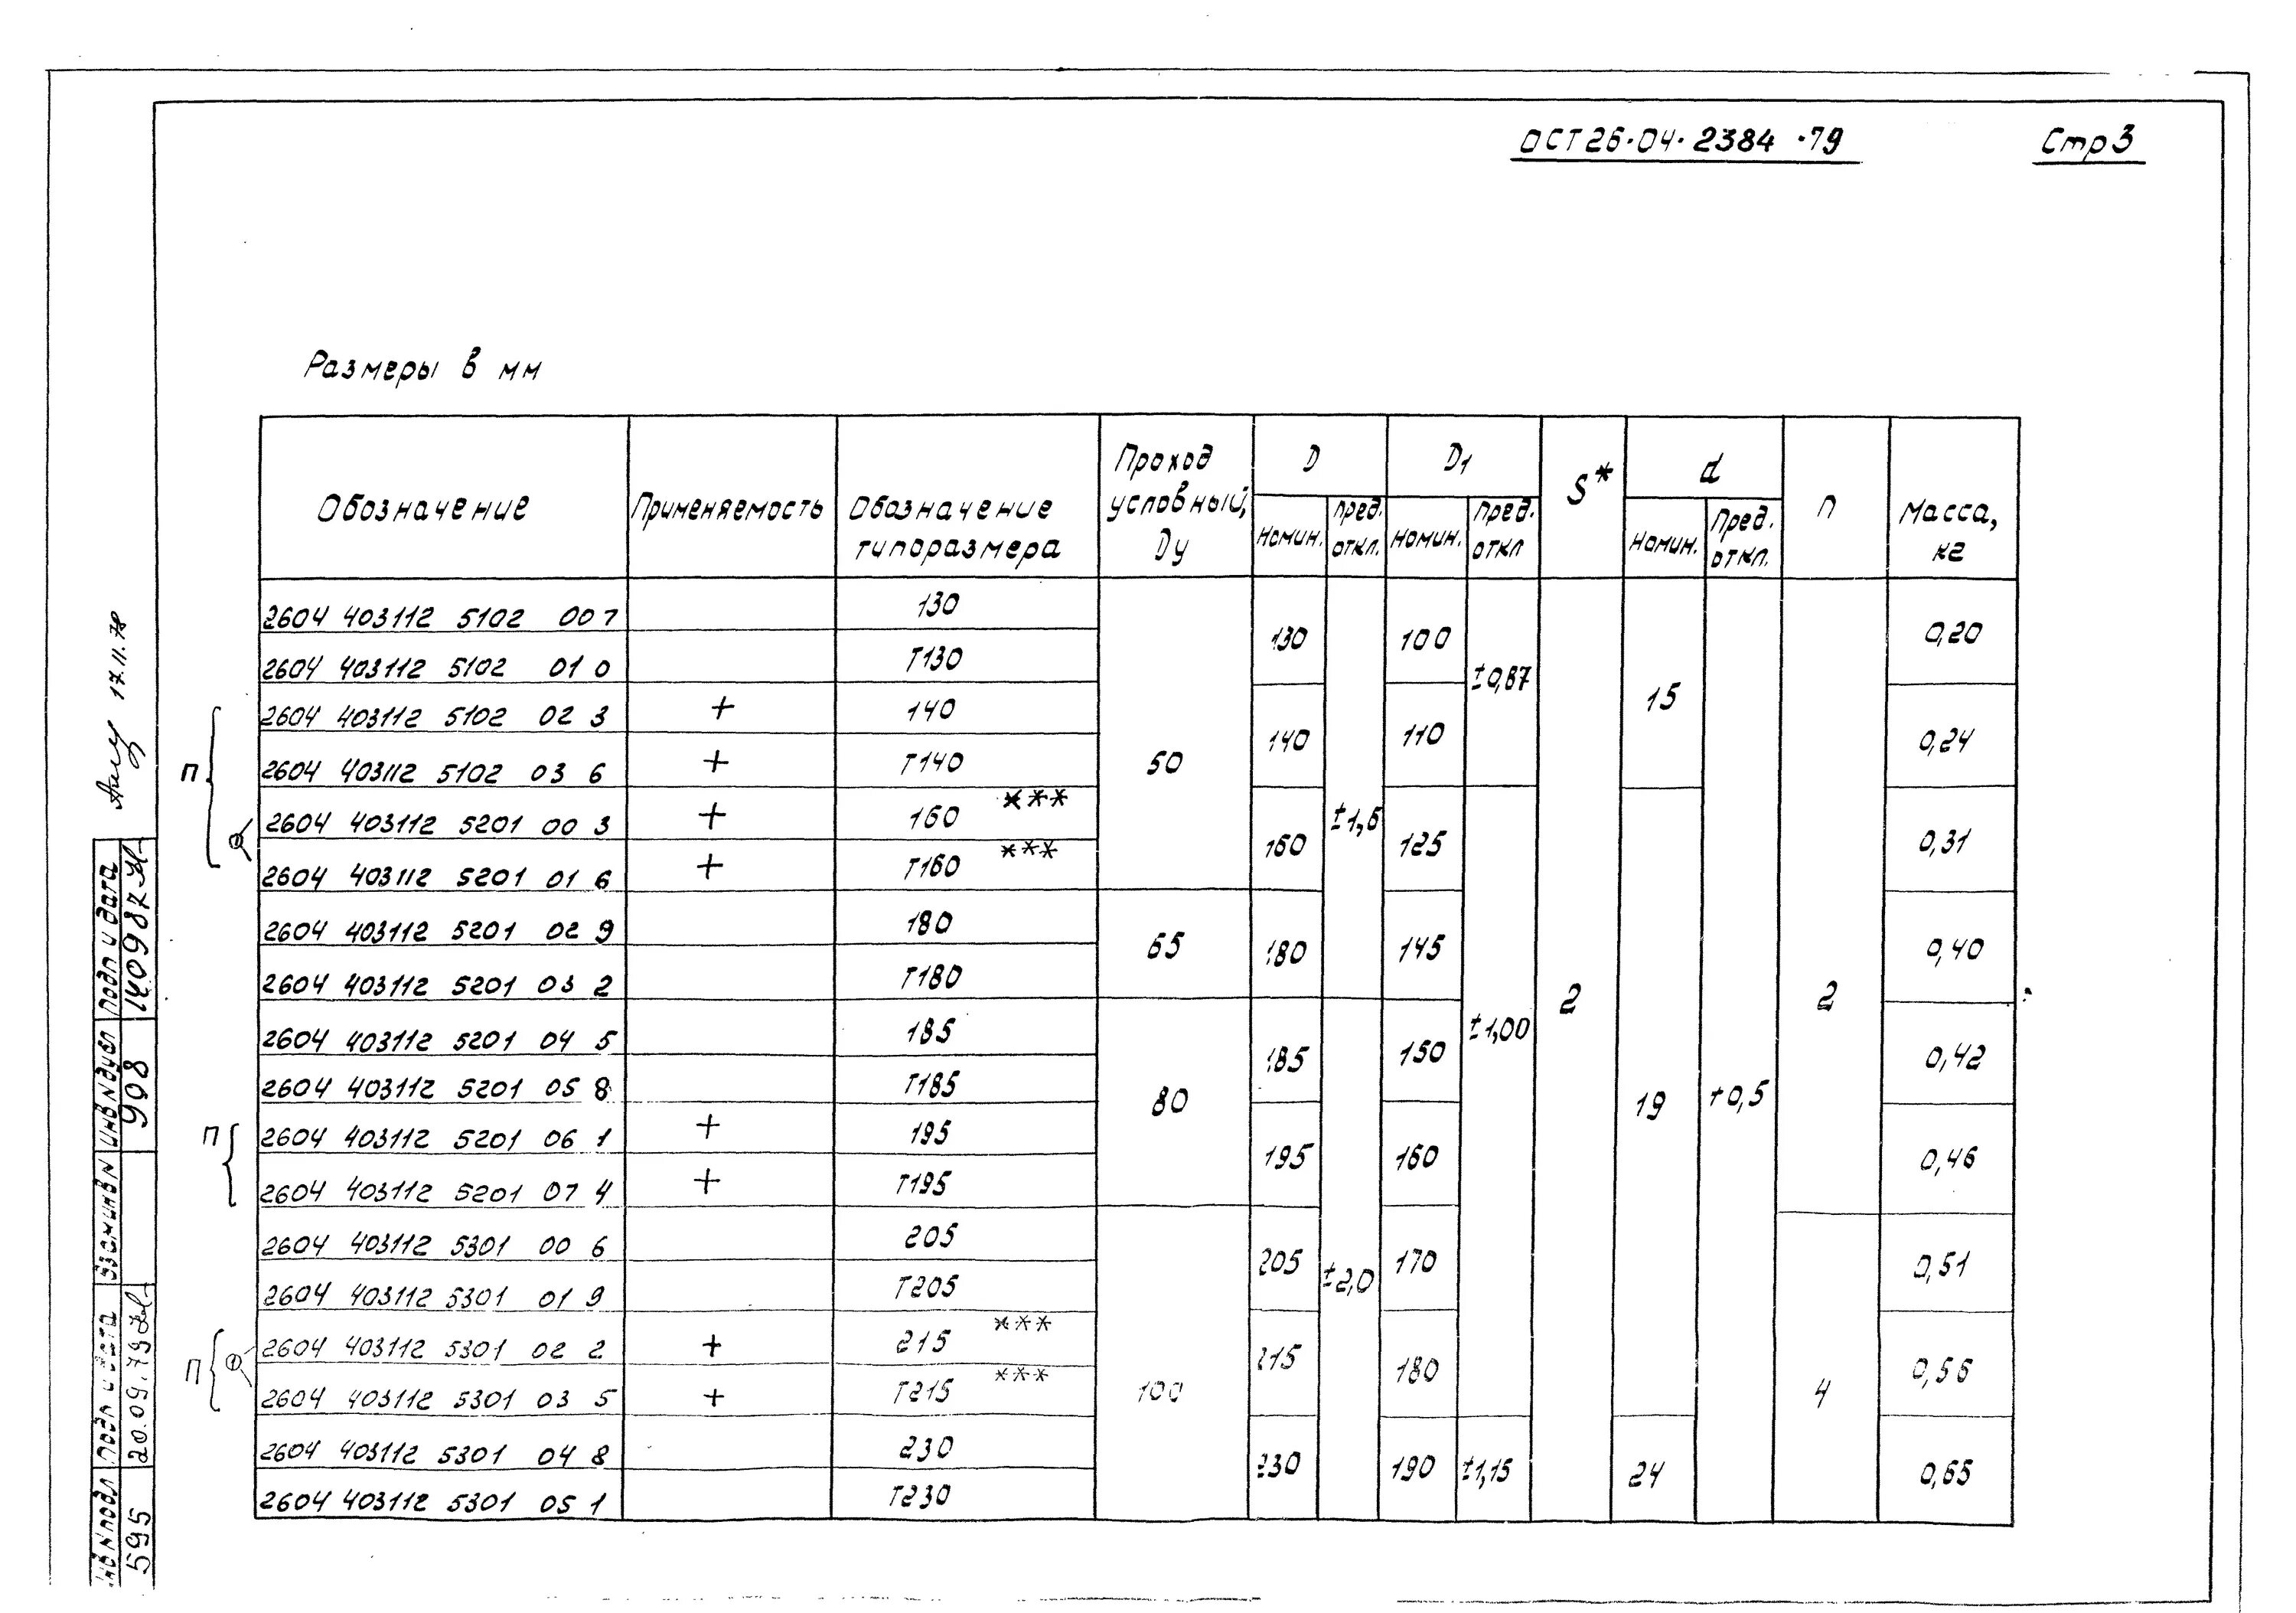 ОСТ 26-04-2384-79 Стр 3
Размеры в мм
Обозначение Применяемость Обозначение типоразмера Проход условный, Dу D D1 S* d n Масса, кг
Номин. Пред. откл. Номин. Пред. откл Номин. Пред. откл.
2604 403112 5102 00 7 130 50 130 ±1,6 100 ±0,87 2 15 +0,5 2 0,20
2604 403112 5102 01 0 Т130
П 2604 403112 5102 02 3 + 140 140 110 0,24
2604 403112 5102 03 6 + Т140
2604 403112 5201 00 3 + 160 *** 160 125 ±1,00 19 0,31
2604 403112 5201 01 6 + Т160 ***
2604 403112 5201 02 9 180 65 180 145 0,40
2604 403112 5201 03 2 Т180
2604 403112 5201 04 5 185 80 185 ±2,0 150 0,42
2604 403112 5201 05 8 Т185
П 2604 403112 5201 06 1 + 195 195 160 0,46
2604 403112 5201 07 4 + Т195
2604 403112 5301 00 6 205 100 205 170 4 0,51
2604 403112 5301 01 9 Т205
П 2604 403112 5301 02 2 + 215 *** 215 180 0,56
2604 403112 5301 03 5 + Т215 ***
2604 403112 5301 04 8 230 230 190 ±1,15 24 0,65
2604 403112 5301 05 1 Т230
17.11.78
Подп и дата
Инв N дубл 998
Взам инв N
Подп и дата 20.09.79
Инв N подл 595